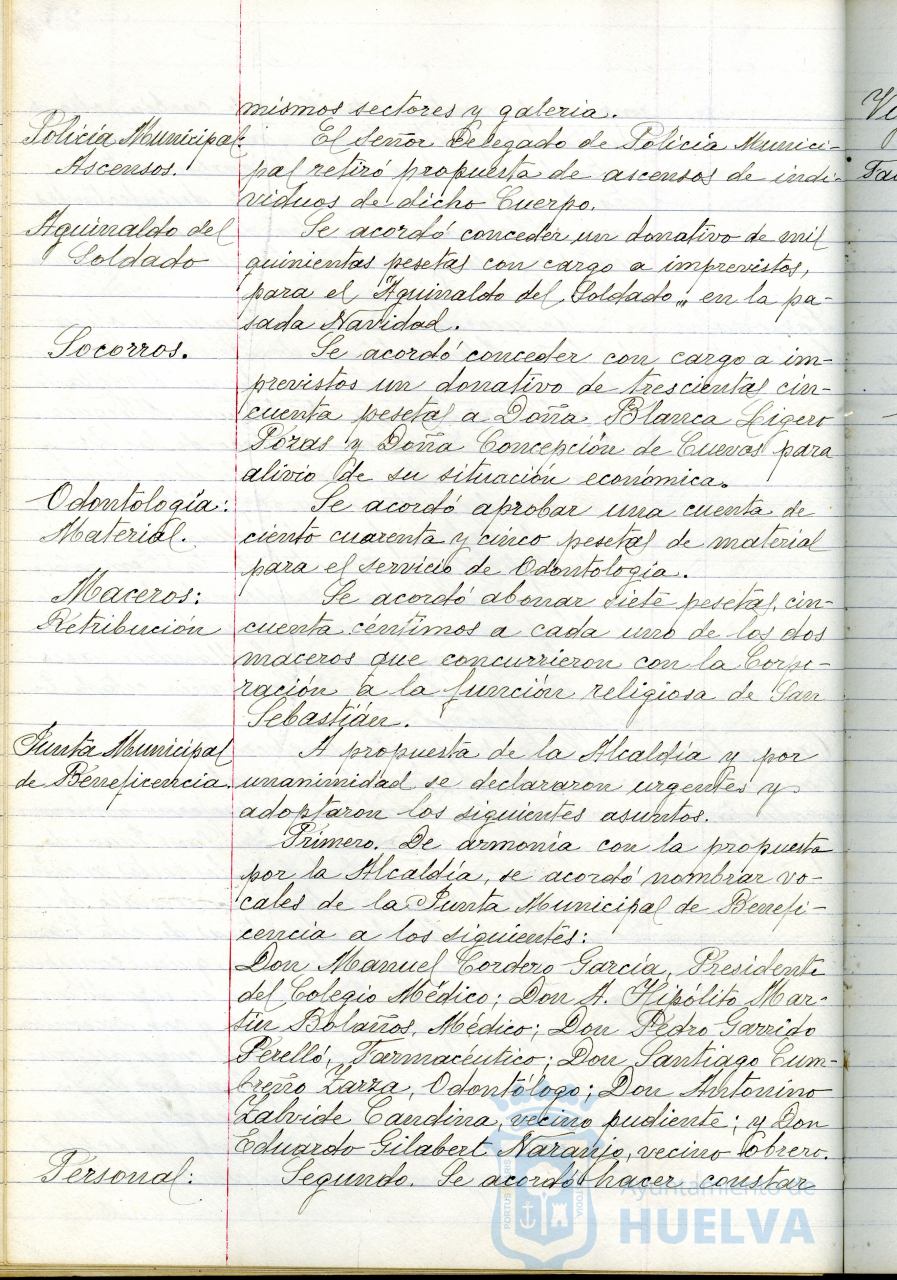 mismos sectores y galeria.
Policía Municipal:
Ascensos.
El Señor Delegado de Policía Munici-
pal retiró propuesta de ascensos de indi-
viduos de dicho Cuerpo.
Aguinaldo del
Soldado
Se acordó conceder un donativo de mil
quinientas pesetas con cargo a imprevistos,
para el "Aguinaldo del Soldado", en la pa-
sada Navidad.
Socorros.
Se acordó conceder con cargo a im-
previstos un donativo de trescientas cin-
cuenta pesetas a Doña Blanca Ligero
Pózas y Doña Concepción de Cuevas para
alivio de su situación económica.
Odontología:
Material.
Se acordó aprobar una cuenta de
ciento cuarenta y cinco pesetas de material
para el servicio de Odontología.
Maceros:
Retribución
Se acordó abonar siete pesetas, cin-
cuenta céntimos a cada uno de los dos
maceros que concurrieron con la Corpo-
ración a la función religiosa de San
Sebastián.
Junta Municipal
de Beneficencia.
A propuesta de la Alcaldía y por
unanimidad se declararon urgentes y
adoptaron los siguientes asuntos.
Primero. De armonía con la propuesta
por la Alcaldía, se acordó nombrar vo-
cales de la Junta Municipal de Benefi-
cencia a los siguientes:
Don Manuel Cordero García, Presidente
del Colegio Médico; Don A. Hipólito Mar-
tín Bolaños, Médico; Don Pedro Garrido
Perelló, Farmacéutico; Don Santiago Cum-
breño Zarza, Odontólogo; Don Antonino
Zalvide Candina, vecino pudiente; y Don
Eduardo Gilabert Naranjo, vecino obrero.
Personal:
Segundo. Se acordó hacer constar
Ayuntamiento de
HUELVA